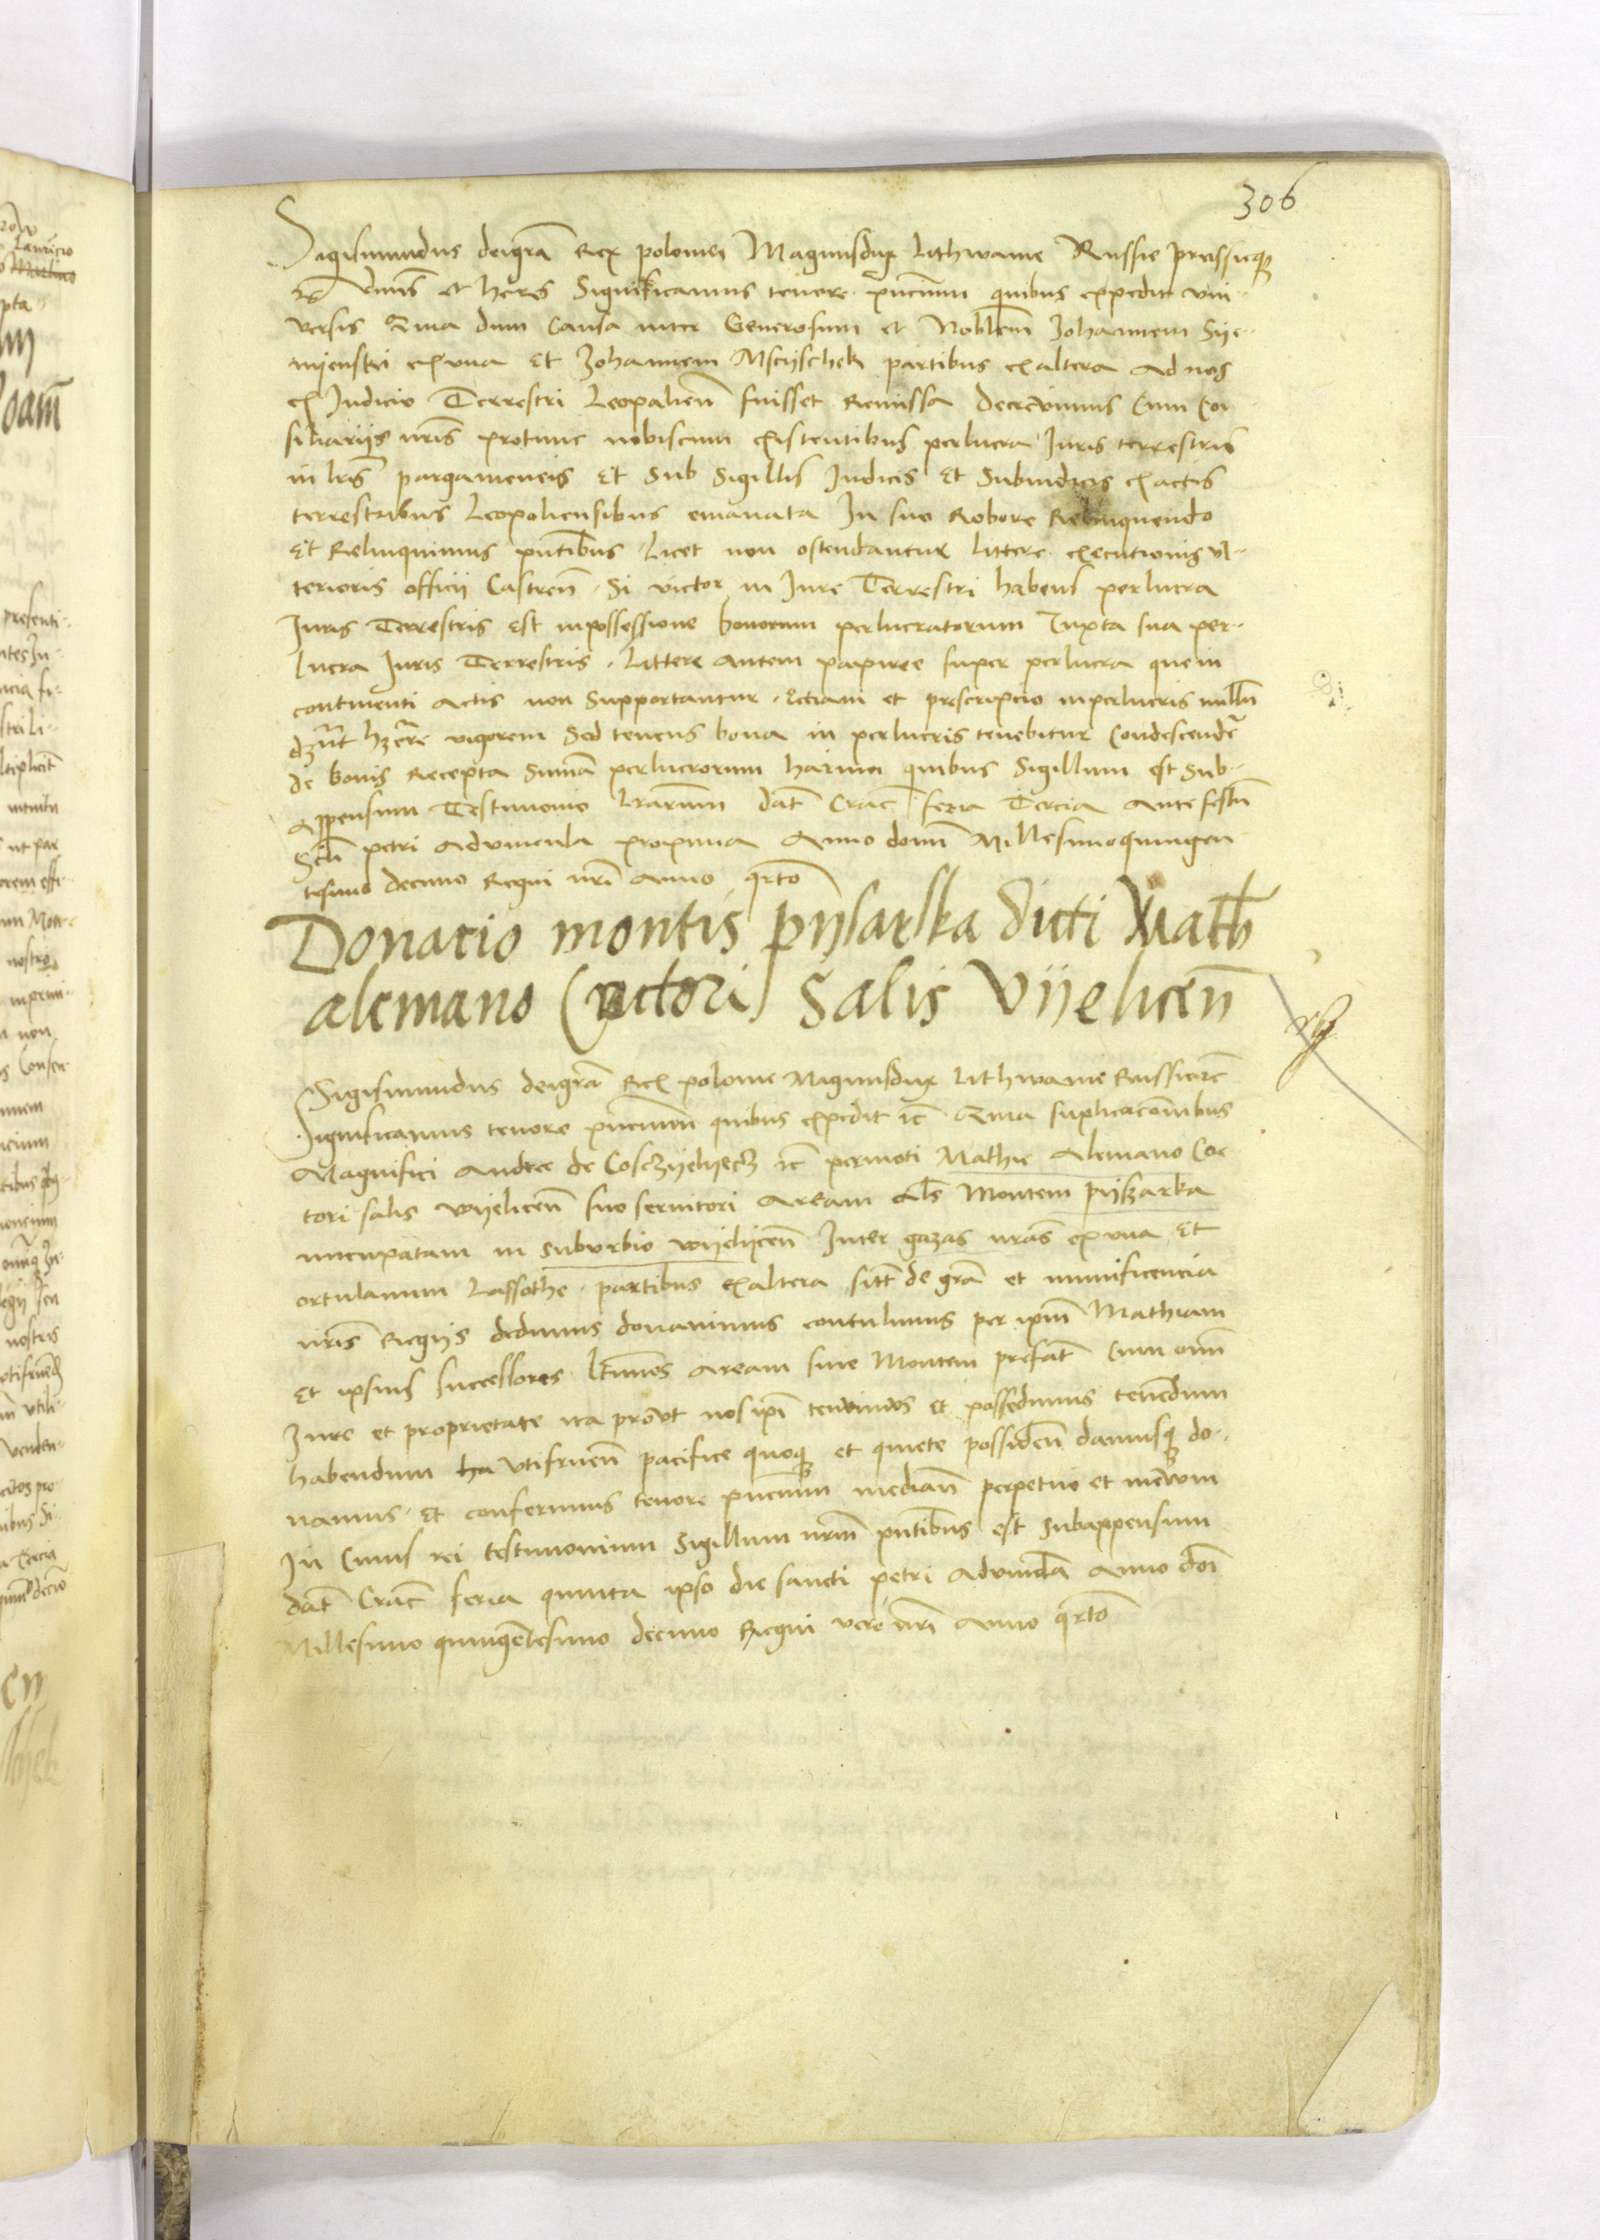 306
Sigismundus deigrã Rex polonei Magnusdux Lithwanie Russie prussieq3
rc dnus et heres Significamus tenore pñcium quibus expedit vni-
versis Quia dum Causa inter Generosum et Noblem Johannem Sije-
nijenski exvna Et Johannem Msczijschek partibus exaltera Ad nos
ex Judicio Terrestri Leopalien̄ fuisset Remissa decrevimus Cum Con
siliarijs nr̄is protunc nobiscum existentibus perlucra Juris terrestris
in lris pargameneis Et Sub Sigillis Judicis Et Subiudicis exactis
terrestribus Leopoliensibus emanata In suo Robore Relinquendo
Et Relinquimus pñtibus. Licet non ostendantur littere executionis vl-
terioris officii Castren̄. Si victor in Jure Terrestri habens perlucra
Juris Terrestris Est inpossessione bonorum perlucratorum Juxta sua per-
lucra Juris Terrestris. Littere autem papiree super perlucra que in
continenti actis non Supportantur. Ecciam et prescripcio inperlucris nullũ
vigorem Sed tenens bona in perlucris tenebitur Condescendẽ
de bonis Recepta Sumã perlucrorum harum quibus Sigillum est Sub-
Appensum Testimonio lrarum dat̄ Crac̄ feria Tercia Ante festũ
Scti petri Advincula proxima Anno domi Millesimoquingen
tesimo decimo Regni nri Anno qrto
Donacio montis pijsarska dicti Math
alemano (rectori Salis Vijelicen̄
Sigismundus deigrã Rex polonie Magnusdux Lithwanie Russie rc̄
Significamus tenore pñcium quibus expedit rc̄ Quia suplicacionibus
Magnifici Andree de Cosczijelijecz rc̄ permoti Mathie Alemano Coc
tori salis vijelicen̄ suo servitori Aream als Montem pijszarka
nuncupatam in suburbio wijelijcen̄ Inter gazas nras exvna Et
ortulanum Lassothe. partibus exaltera sitt̄ de grã et munificencia
nris Regijs dedimus donavimus contulimus per ipm̄ Mathiam
Et ipsius successores ltimos Aream siue Montem prefat̄ Cum omni
Jure et proprietate ita prout nos ipi tenuimus et possedimus tenendum
habendum ha vtifruen̄ pacifice quoq3 et quiete possiden̄ damusq3 do-
namus. Et conferimus tenore pñcium median̄ perpetuo et in ewm
In Cuius rei testimonium Sigillum nrm̄ pñtibus est subappensum
dat̄ Crac̄ feria quinta ipso die sancti petri Advincula Anno doi
Millesimo quingentesimo decimo Regni vero nri Anno qrto